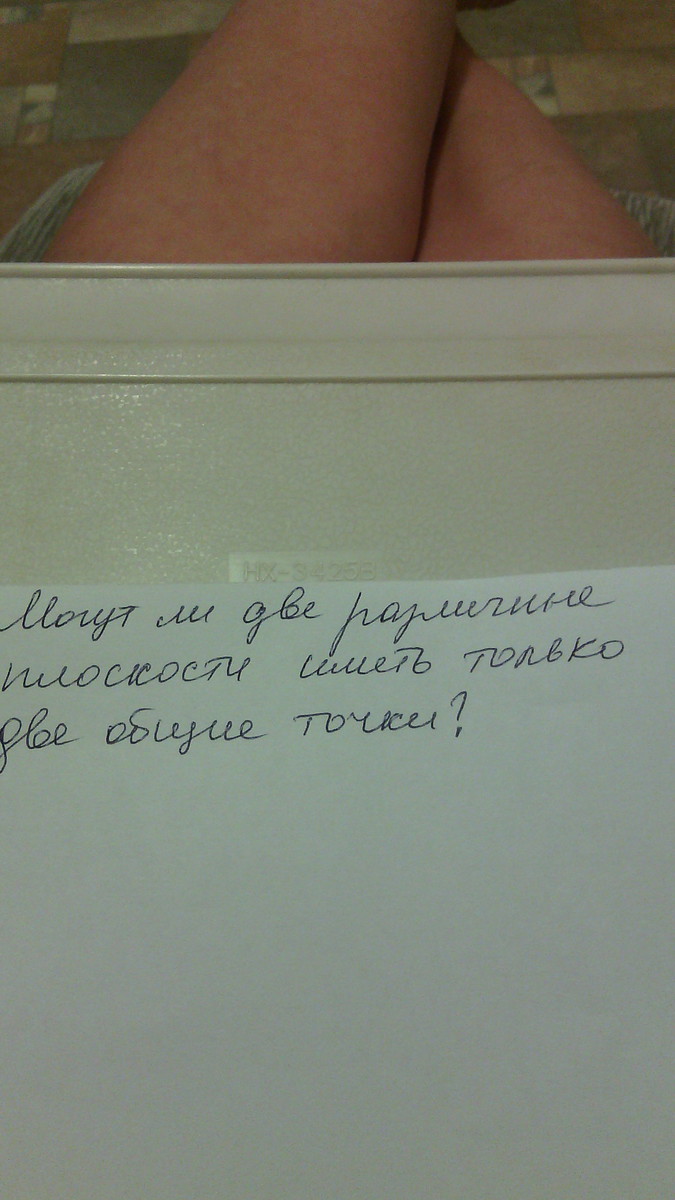 HX-3425B
Могут ли две различные
плоскости иметь только
две общие точки?